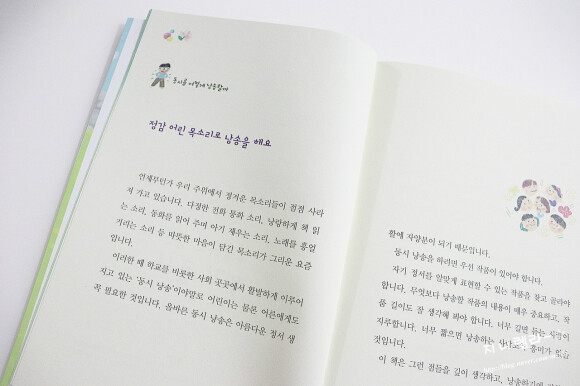 동시를 이렇게 낭송할래
정감 어린 목소리로 낭송을 해요
언제부턴가 우리 주위에서 정겨운 목소리들이 점점 사라
져 가고 있습니다. 다정한 전화 통화 소리, 낭랑하게 책 읽
는 소리, 동화를 읽어 주며 아기 재우는 소리, 노래를 흥얼
거리는 소리 등 따뜻한 마음이 담긴 목소리가 그리운 요즘
입니다.
이러한 때 학교를 비롯한 사회 곳곳에서 활발하게 이루어
지고 있는 '동시 낭송'이야말로 어린이는 물론 어른에게도
꼭 필요한 것입니다. 올바른 동시 낭송은 아름다운 정서 생
활에 자양분이 되기 때문입니다.
동시 낭송을 하려면 우선 작품이 있어야 합니다.
자기 정서를 알맞게 표현할 수 있는 작품을 찾고 골라야
합니다. 무엇보다 낭송할 작품의 내용이 매우 중요하고, 작
품 길이도 잘 생각해 봐야 합니다. 너무 길면 듣는 사람이
지루합니다. 너무 짧으면 낭송하는 사람도 흥미가 없을
것입니다.
이 책은 그런 점들을 깊이 생각하고, 낭송하기에